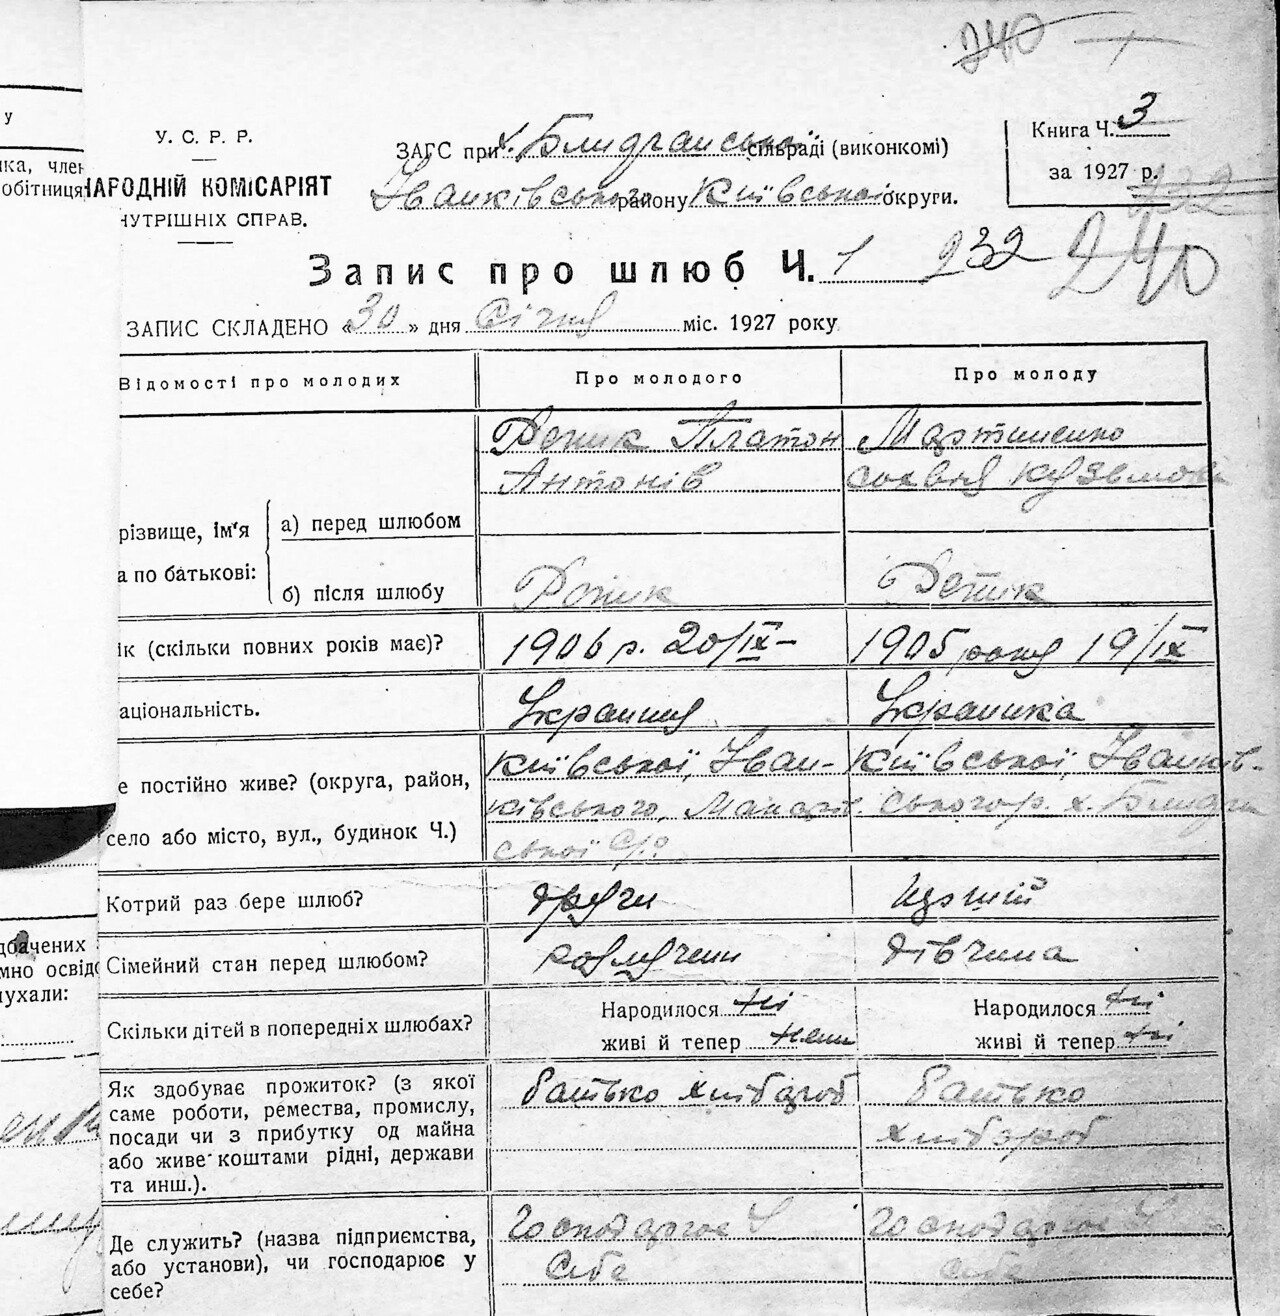 240
У. С. Р. Р.
НАРОДНІЙ КОМІСАРІЯТ
НУТРІШНІХ СПРАВ.
ЗАГС при х. сільраді (виконкомі)
Іванківського району Київської округи.
Книга Ч. 3
за 1927 р.
222
Запис про шлюб Ч. 1 232 240
ЗАПИС СКЛАДЕНО «30» дня Січня міс. 1927 року
Відомості про молодих
Про молодого
Про молоду
різвище, ім'я
а по батькові:
а) перед шлюбом
б) після шлюбу
Репик Платон
Антонів
Репик
Мартиненко
Кузьмова
Репик
ік (скільки повних років має)?
1906 р. 20/IX
1905 року 19/IX
аціональність.
Украинця
Украинка
е постійно живе? (округа, район,
село або місто, вул., будинок Ч.)
Київської, Іван-
ківського,
ської с/р
Київської, Іванків-
ського р. х.
Котрий раз бере шлюб?
други
Сімейний стан перед шлюбом?
розлучени
дівчина
Скільки дітей в попередніх шлюбах?
Народилося ні
живі й тепер нема
Народилося ні
живі й тепер ні
Як здобуває прожиток? (з якої
саме роботи, ремества, промислу,
посади чи з прибутку од майна
або живе коштами рідні, держави
та инш.).
батько хлібороб
батько
хлібороб
Де служить? (назва підприємства,
або установи), чи господарює у
себе?
Господарює у
себе
Господарює у
себе
у
ика, член
обітниця
дбачених
мно освідо
лухали: